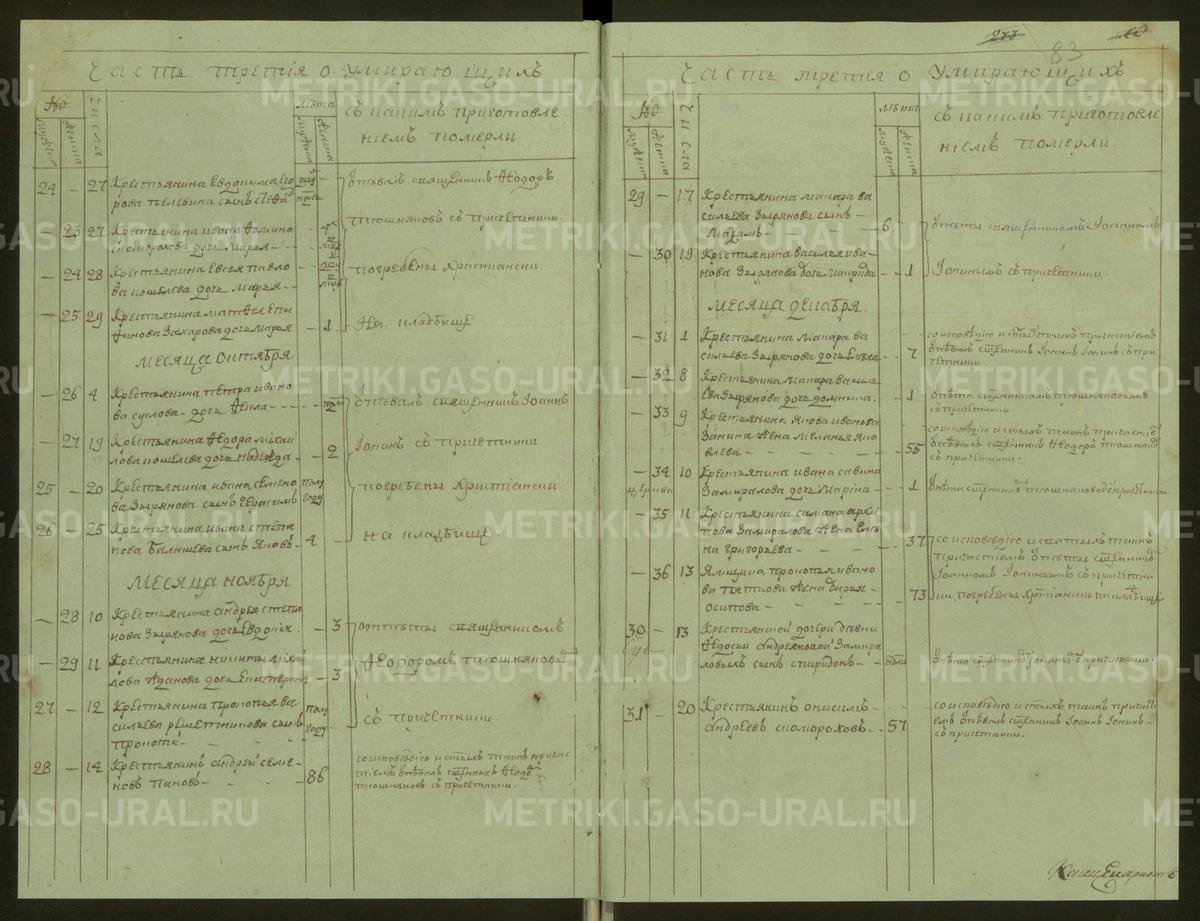 Часть третія о умирающихъ
№
числа
лѣта
съ какимъ приготовле
ніемъ померли
мужеска
женска
мужеска
женска
24 – 27 Крестьянина Евдокима
сынъ
полу
отпѣвалъ священникъ Ѳеодоръ
– 23 27 Крестьянина Ивана Ѳомина
Скоморохова дочь Марья – 4
съ причетники
– 24 28 Крестьянина Евсея Павло
ва Кошелева дочь Марья –
погребены Христіански
– 25 29 Крестьянина Матѳея Епи
фанова Захарова дочь Марья – 1
На кладбище
Месяца октября
– 26 4 Крестьянина Петра Ивано
ва Суслова – дочь – 2
отпѣвалъ священникъ Іоаннъ
– 27 19 Крестьянина Ѳедора Михаи
лова Кошелева дочь Надежда – 2
Іонинъ съ причетники
25 – 20 Крестьянина Ивана Семено
ва Зырянова сынъ Герасимъ
полу
году
погребены Христіански
26 – 25 Крестьянина Ивана Степа
нова Балашева сынъ Яковъ – 4 –
на кладбище
Месяца ноября
– 28 10 Крестьянина Андрея Степа
нова Зырянова дочь Евдокія – 3
отпѣты священникомъ
– 29 11 Крестьянина Никиты Михаи
лова дочь Екатерина – 3
Ѳеодоромъ
27 – 12 Крестьянина Прокопья Ва
сильева Решетникова сынъ
Прокопій –
полу
году
съ причетники
28 – 14 Крестьянинъ Андрей Семе
новъ Пановъ – 86
со исповѣдію и святыхъ таинъ причас
тіемъ отпѣвалъ священникъ Ѳеодоръ
съ причетники.
277
83
Часть третія о умирающихъ
№
числа
лѣта
съ какимъ приготовле
ніемъ померли.
мужеска
женска
мужеска
женска
29 – 17 Крестьянина Макара Ва
сильева Зырянова сынъ –
Максимъ – 6
отпѣты священникомъ Іоанномъ
– 30 19 Крестьянина Василья Ива
нова Зырянова дочь – 1
Іонинымъ съ причетники.
Месяца декабря.
– 31 1 Крестьянина Макара Ва
сильева Зырянова дочь Елена – 7
со исповѣдію и святыхъ таинъ причастіемъ
отпѣвалъ священникъ Іоаннъ Іонинъ съ при
четники.
– 32 8 Крестьянина Макара Василь
ева Зырянова дочь Домника. – 1
отпѣта священникомъ
съ причетники
– 33 9 Крестьянина Якова Иванова
Занина жена Меланья Яко
влева – 55
со исповѣдію и святыхъ таинъ причастіемъ
отпѣвалъ священникъ Ѳеодоръ
съ причетники.
– 34 10 Крестьянина Ивана Савина
Замиралова дочь Марина – 1
отпѣта священникомъ съ причетники
– 35 11 Крестьянина Архи
пова Замиралова жена Еле
на Григорьева – 37
со исповѣдію и святыхъ таинъ
причастіемъ отпѣты священникомъ
– 36 13 Ямщика Прокопья Ивано
ва жена Дарья
Осипова – 73
Іоанномъ Іонинымъ съ причетни
ки погребены Христіански на кладбище
30 – 13 Крестьянской дочери дѣвки
Ѳедосьи Андреяновой Замира
ловыхъ сынъ Спиридонъ –
отпѣта священникомъ Іоанномъ съ причетники.
31 – 20 Крестьянинъ Онисимъ –
Андреевъ Скомороховъ – 57
со исповѣдію и святыхъ таинъ причасті
емъ отпѣвалъ священникъ Іоаннъ Іонинъ –
съ причетники.
METRIKI.GASO-URAL.RU